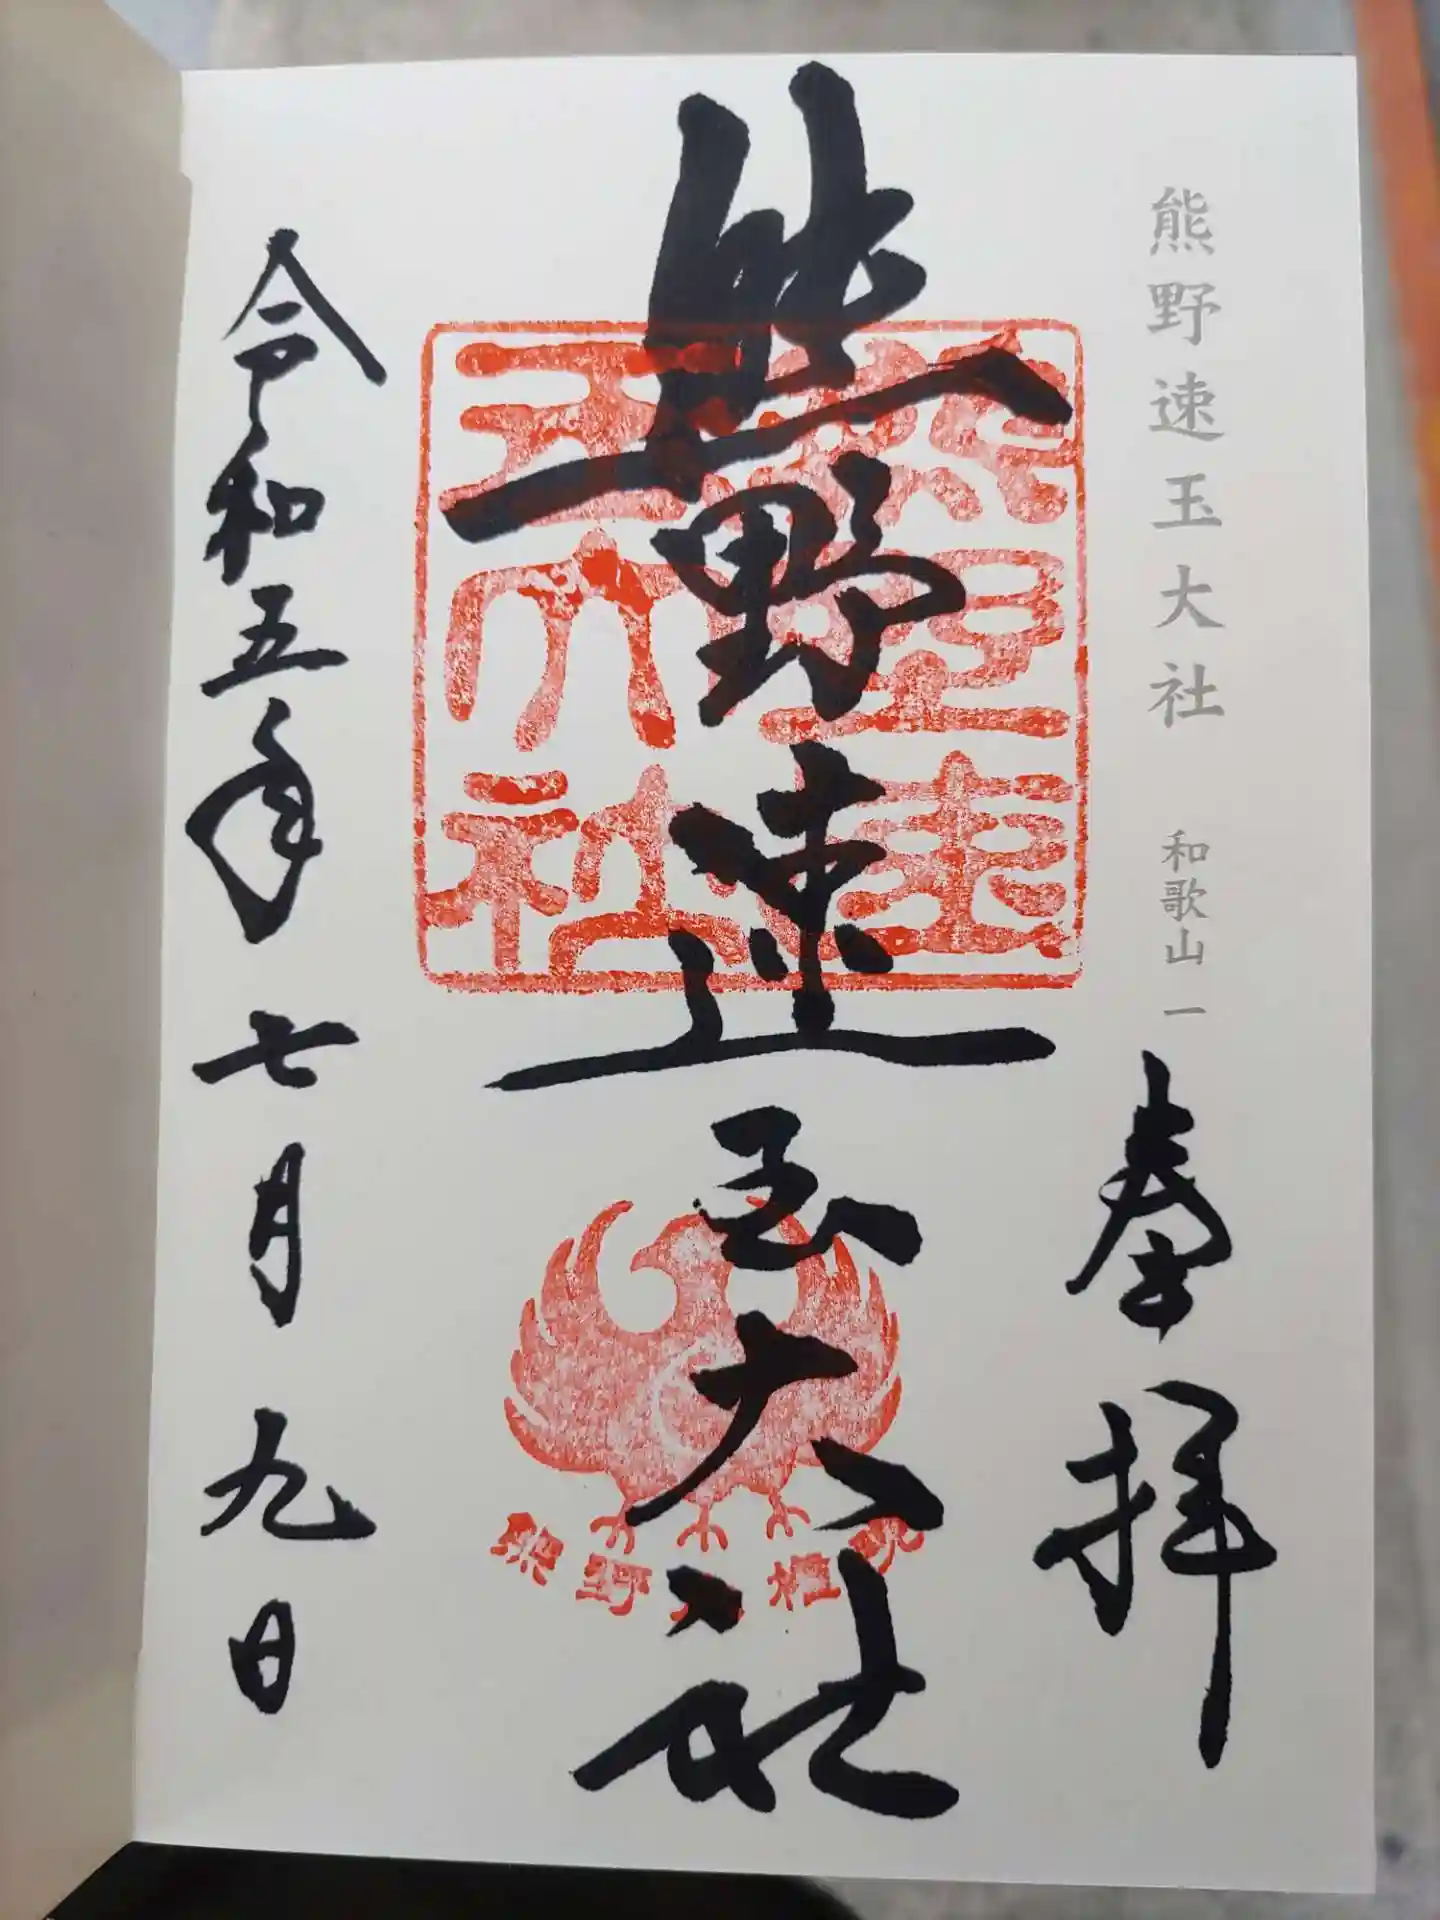 熊野速玉大社 和歌山 一
奉拝
熊野速玉大社
熊野速
玉大社
熊野大権現
令和五年七月九日